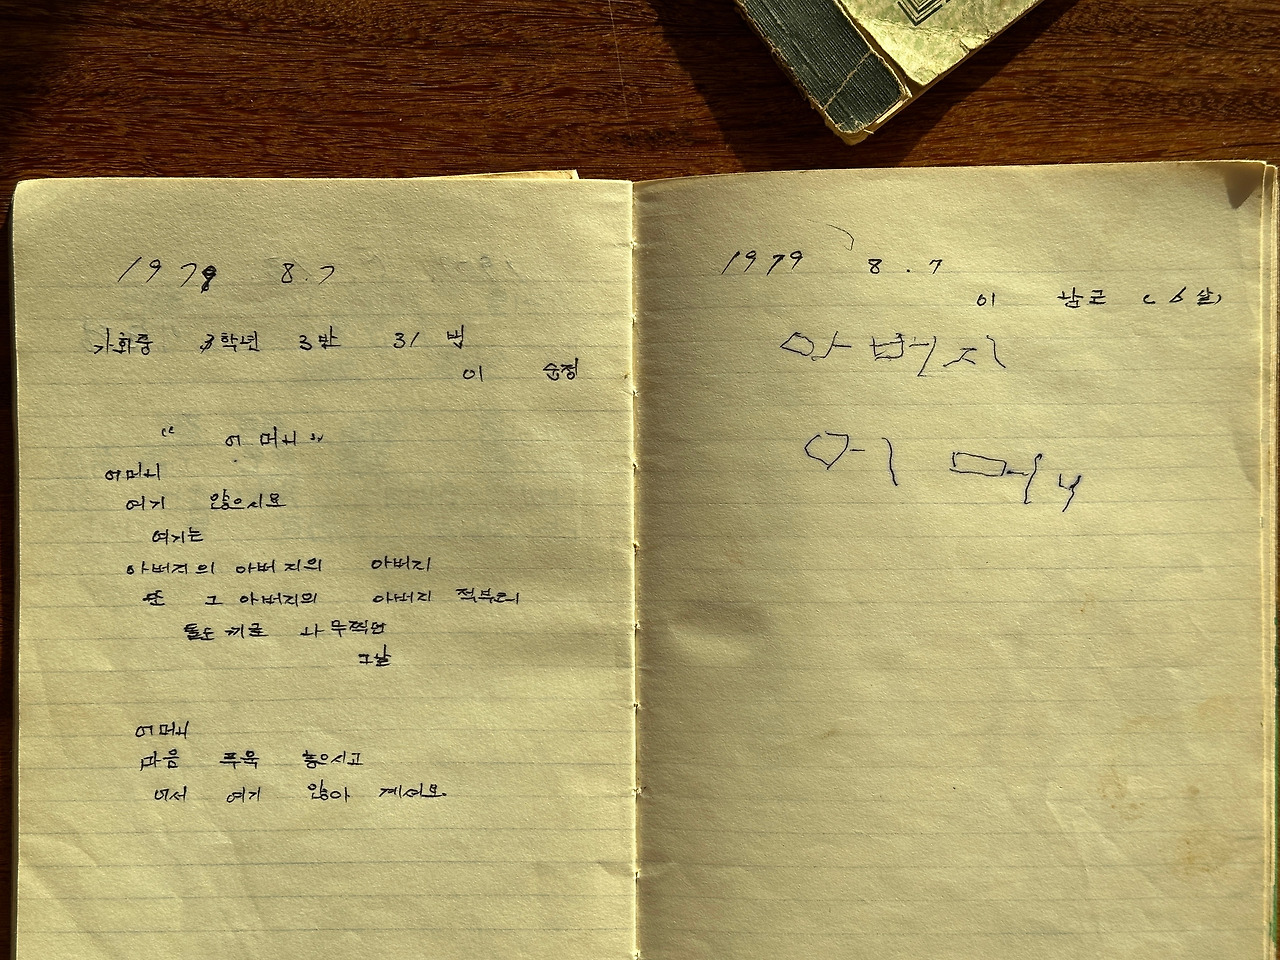 1979 8.7
가화중 3학년 3반 31 번
이 순정
“ 어 머니 ”
어머니
여기 앉으시요
여기는
아버지의 아버지의 아버지
또 그 아버지의 아버지 적부터
돌도끼로 나무찍던
그날
어머니
마음 푸욱 놓으시고
어서 여기 앉아 계셔요.
1979 8.7
이 남근 (6살)
아버지
어 머니